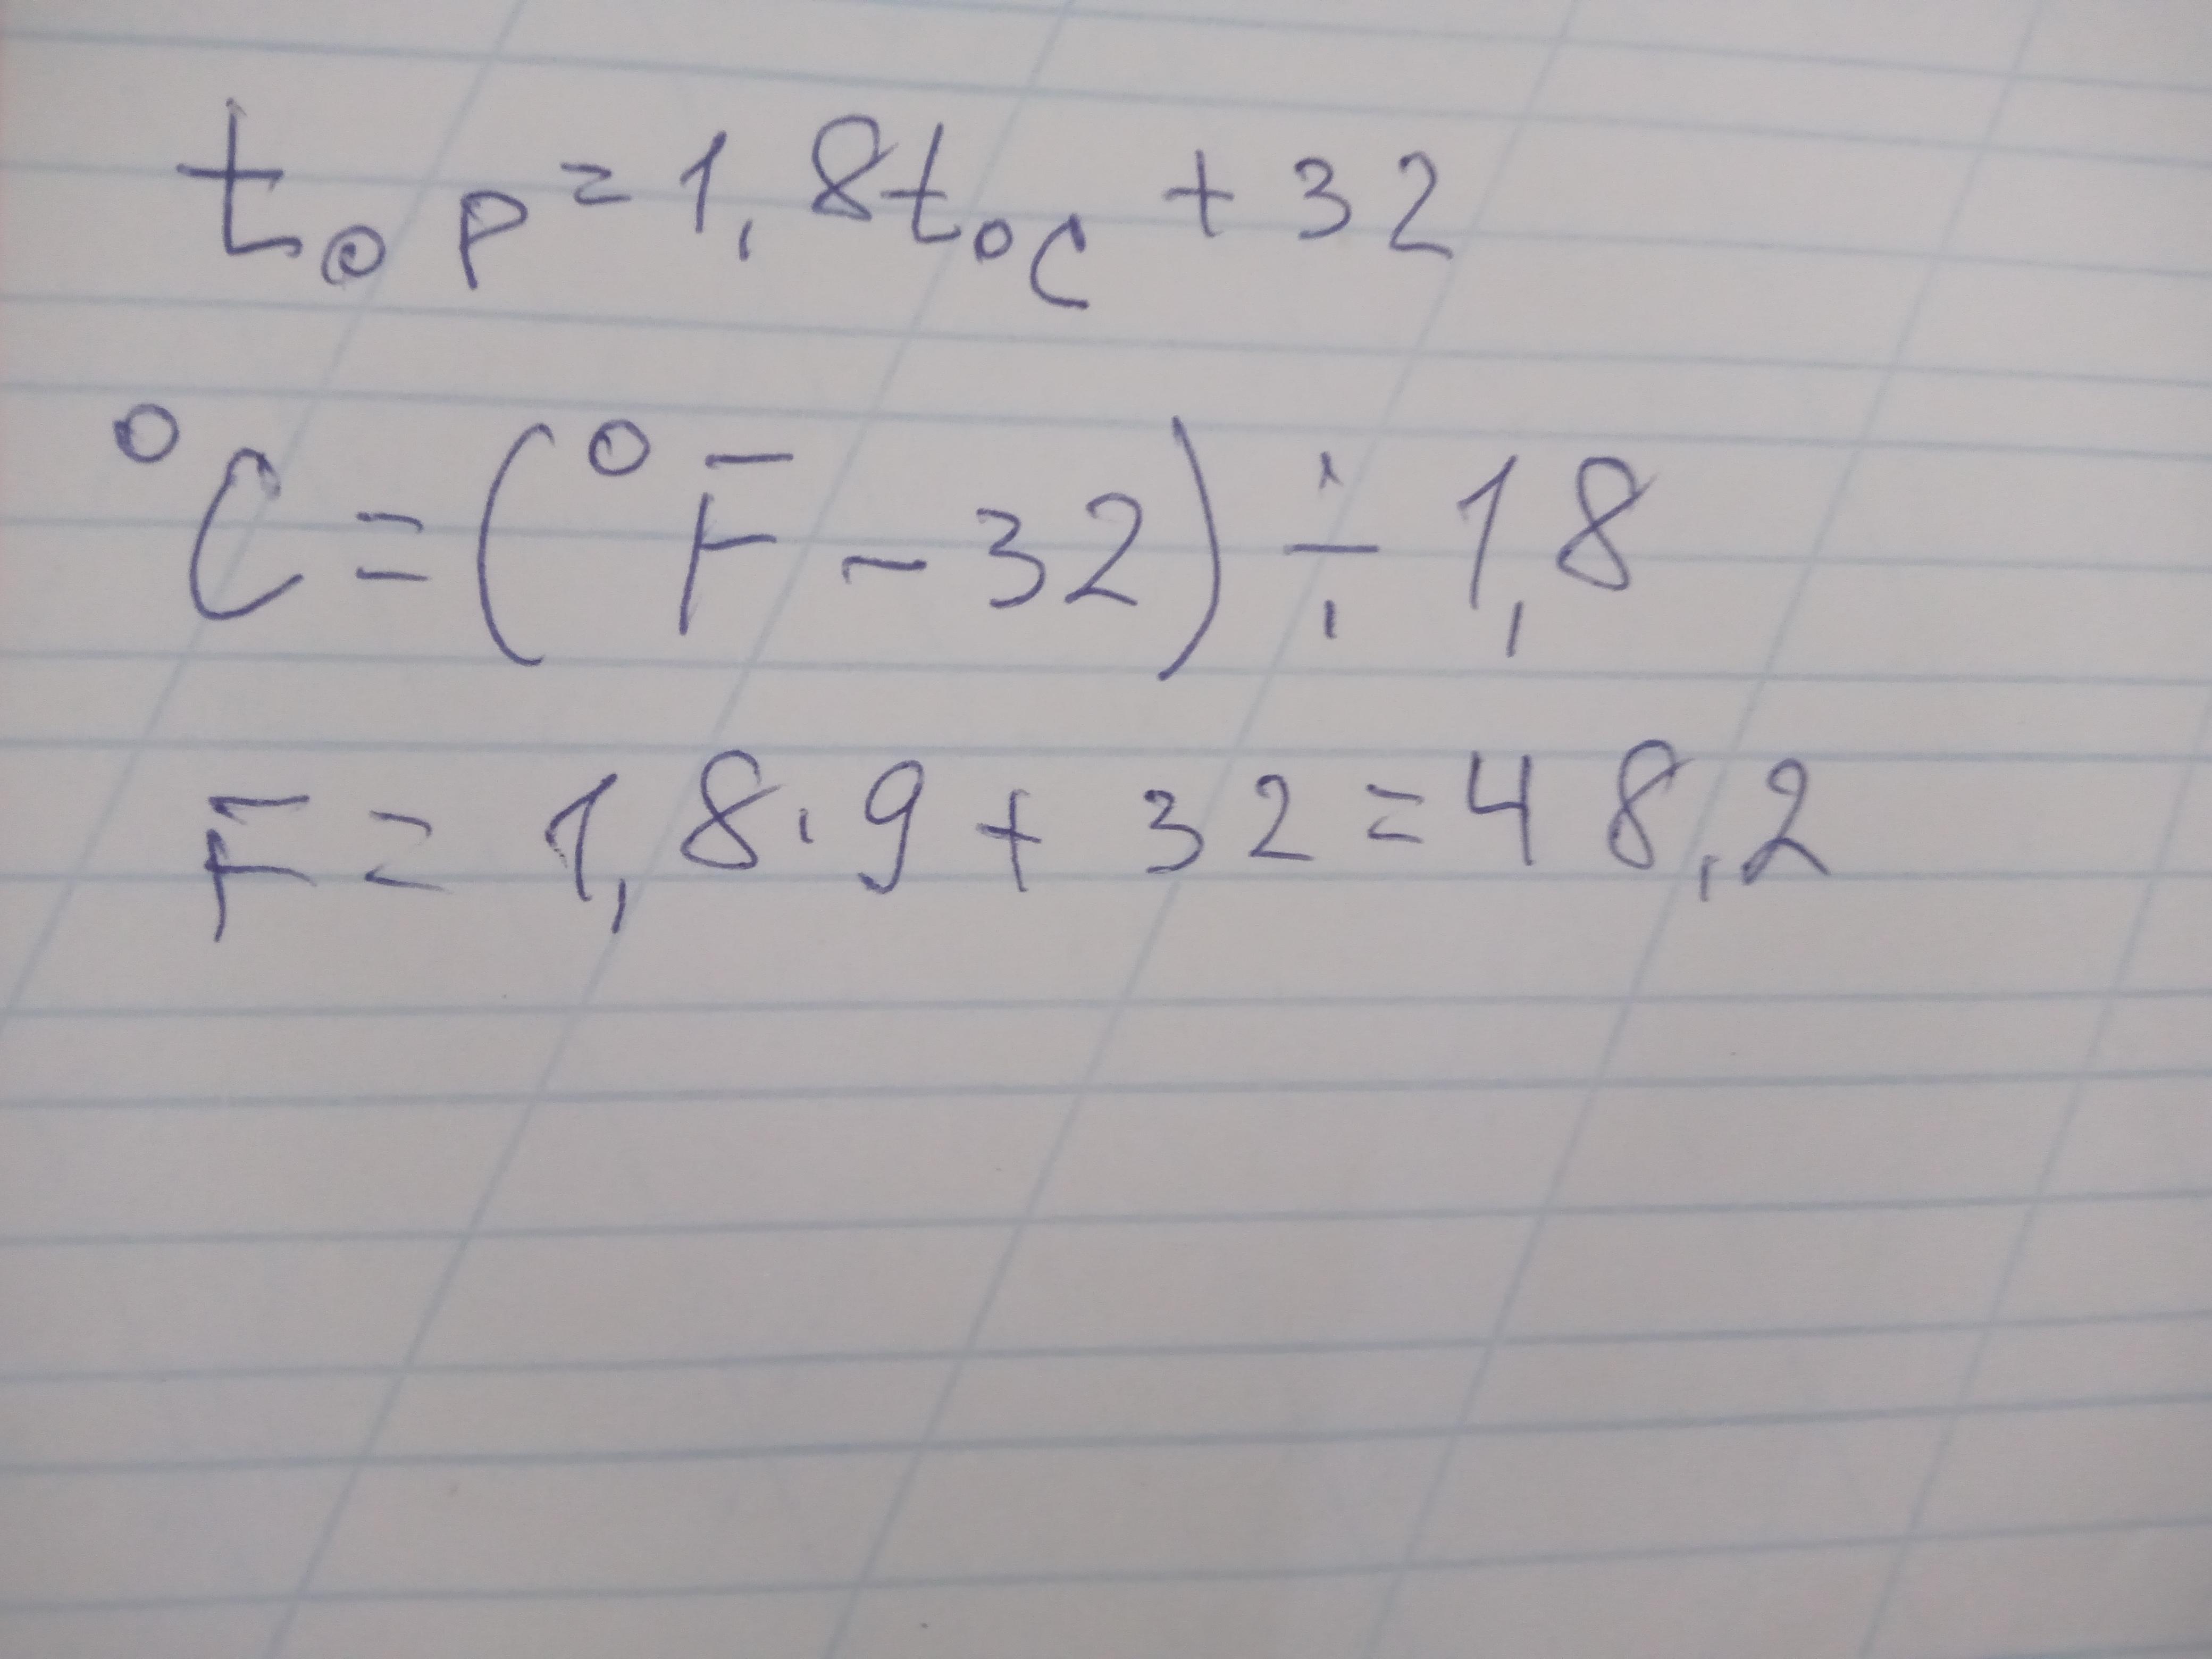 t°P = 1,8t°C + 32
°C = (°F - 32) ÷ 1,8
F = 1,8 · 9 + 32 = 48,2